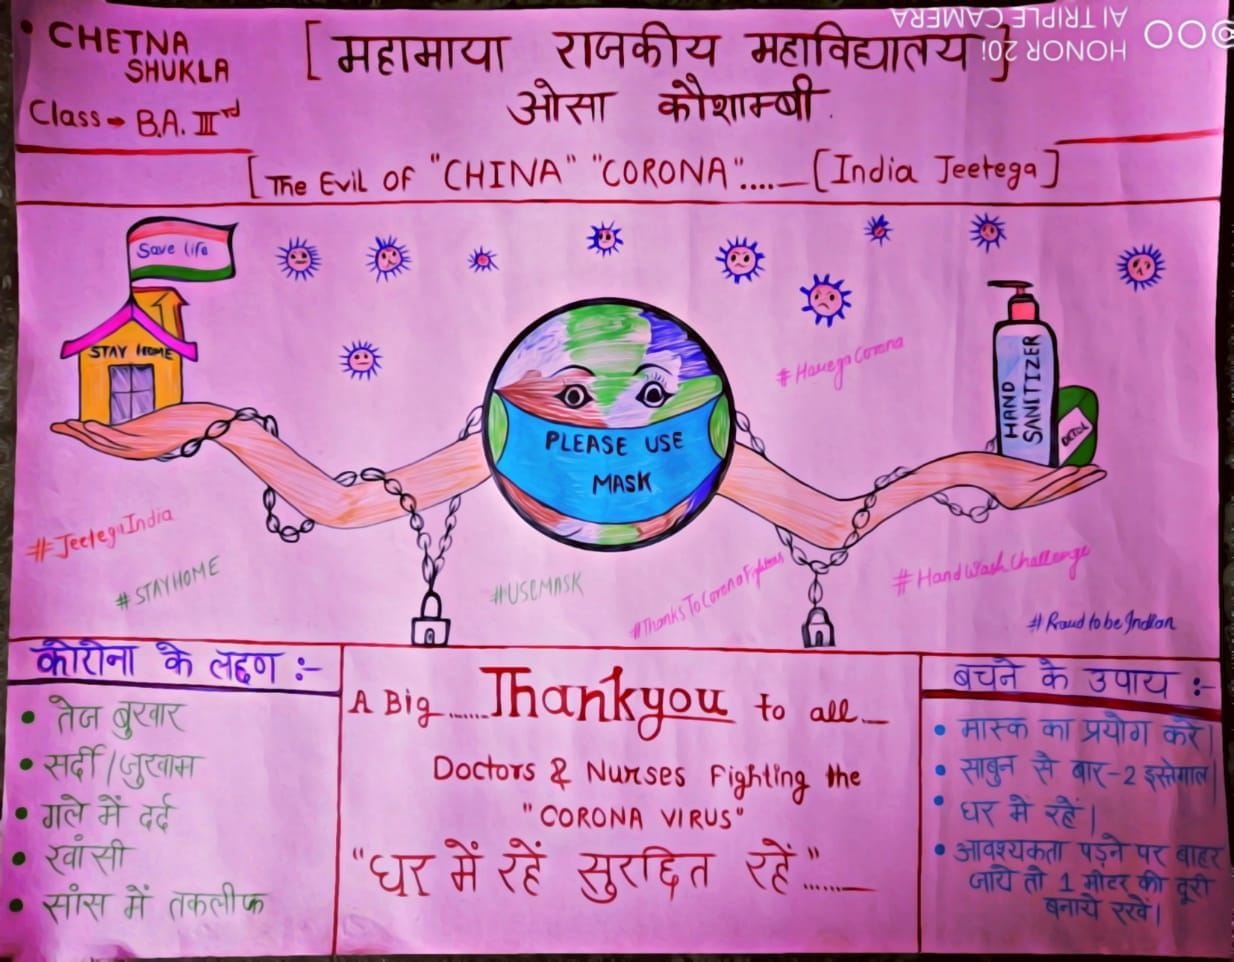 CHETNA
SHUKLA
Class → B.A. IIIrd
[ महामाया राजकीय महाविद्यालय ]
ओसा कौशाम्बी.
HONOR 20i
AI TRIPLE CAMERA
[The Evil Of "CHINA" "CORONA"....— [India Jeetega]
Save life
STAY HOME
#Haarega Corona
HAND
SANITIZER
DETOL
PLEASE USE
MASK
#JeetegaIndia
#STAYHOME
#USEMASK
#ThanksToCoronaFighters
#HandWashChallenge
#ProudtobeIndian
कोरोना के लक्षण :-
• तेज बुखार
• सर्दी/जुखाम
• गले में दर्द
• खांसी
• सांस में तकलीफ
A Big ...... Thankyou to all —
Doctors & Nurses Fighting the
"CORONA VIRUS"
"घर में रहें सुरक्षित रहें"......—
बचने के उपाय :-
• मास्क का प्रयोग करें।
• साबुन से बार-2 इस्तेमाल
• घर में रहें।
• आवश्यकता पड़ने पर बाहर
जाये तो 1 मीटर की दूरी
बनाये रखें।